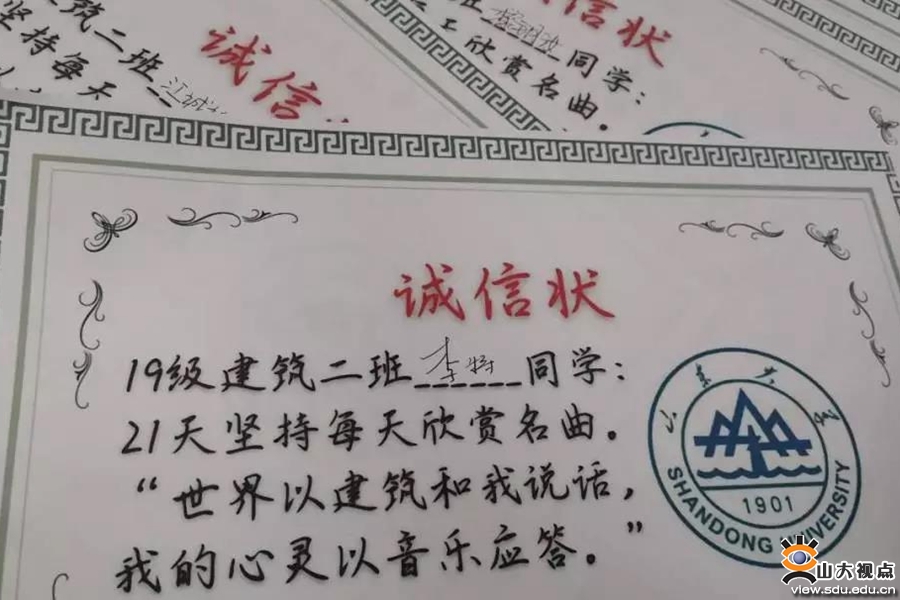 筑二班江
坚持每天
诚信
诚信状
同学:
欣赏名曲。
诚信状
19级建筑二班李特同学:
21天坚持每天欣赏名曲。
“世界以建筑和我说话,
我的心灵以音乐应答。”
山东大学
1901
SHANDONG UNIVERSITY
山大视点
www.view.sdu.edu.cn